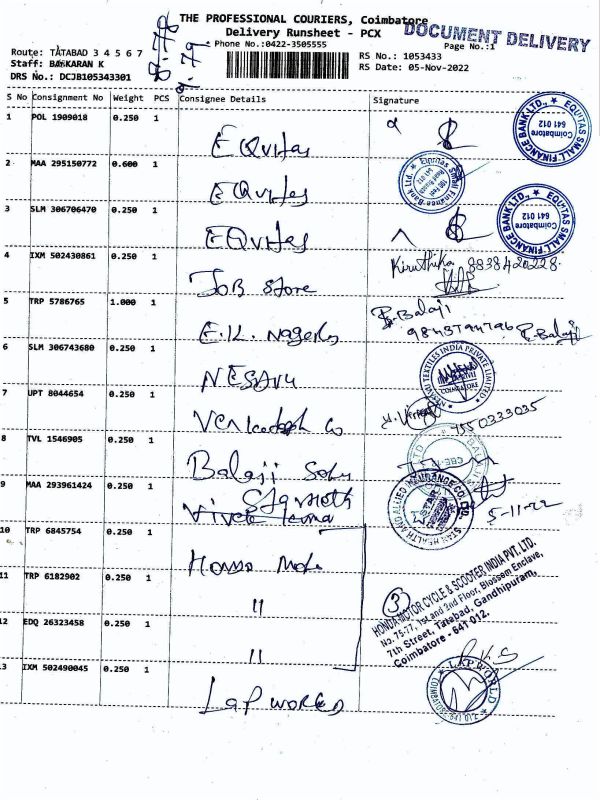 THE PROFESSIONAL COURIERS, Coimbatore
Delivery Runsheet - PCX
DOCUMENT DELIVERY
Phone No.:0422-3505555
Page No.:1
Route: TATABAD 3 4 5 6 7
Staff: BASKARAN K
DRS No.: DCJB105343301
RS No.: 1053433
RS Date: 05-Nov-2022
S No Consignment No Weight PCS Consignee Details Signature
1 POL 1909018 0.250 1 EQUITAS
EQUITAS SMALL FINANCE BANK LTD., Coimbatore 641 012
2 MAA 295150772 0.600 1 EQUITAS
3 SLM 306706470 0.250 1 EQUITAS
EQUITAS SMALL FINANCE BANK LTD., Coimbatore 641 012
4 IXM 502430861 0.250 1 JOB Store Kiruthika 9838420228
5 TRP 5786765 1.000 1 E.K. Nager B. Balaji
B. Balaji
6 SLM 306743680 0.250 1 NESAVU
TEXTILES INDIA PRIVATE LIMITED COIMBATORE
7 UPT 8044654 0.250 1 Venkatesh Co 9550333035
8 TVL 1546905 0.250 1 Balaji
9 MAA 293961424 0.250 1 Star Health
STAR HEALTH AND ALLIED INSURANCE CO. LTD.
5-11-22
10 TRP 6845754 0.250 1 Honda Moto
11 TRP 6182902 0.250 1 "
3
HONDA MOTOR CYCLE & SCOOTER INDIA PVT. LTD.
No. 75-77, 1st and 2nd Floor, Blossom Enclave,
7th Street, Tatabad, Gandhipuram,
Coimbatore - 641 012.
12 EDQ 26323458 0.250 1 "
13 IXM 502490045 0.250 1 LAP WORLD
LAP WORLD